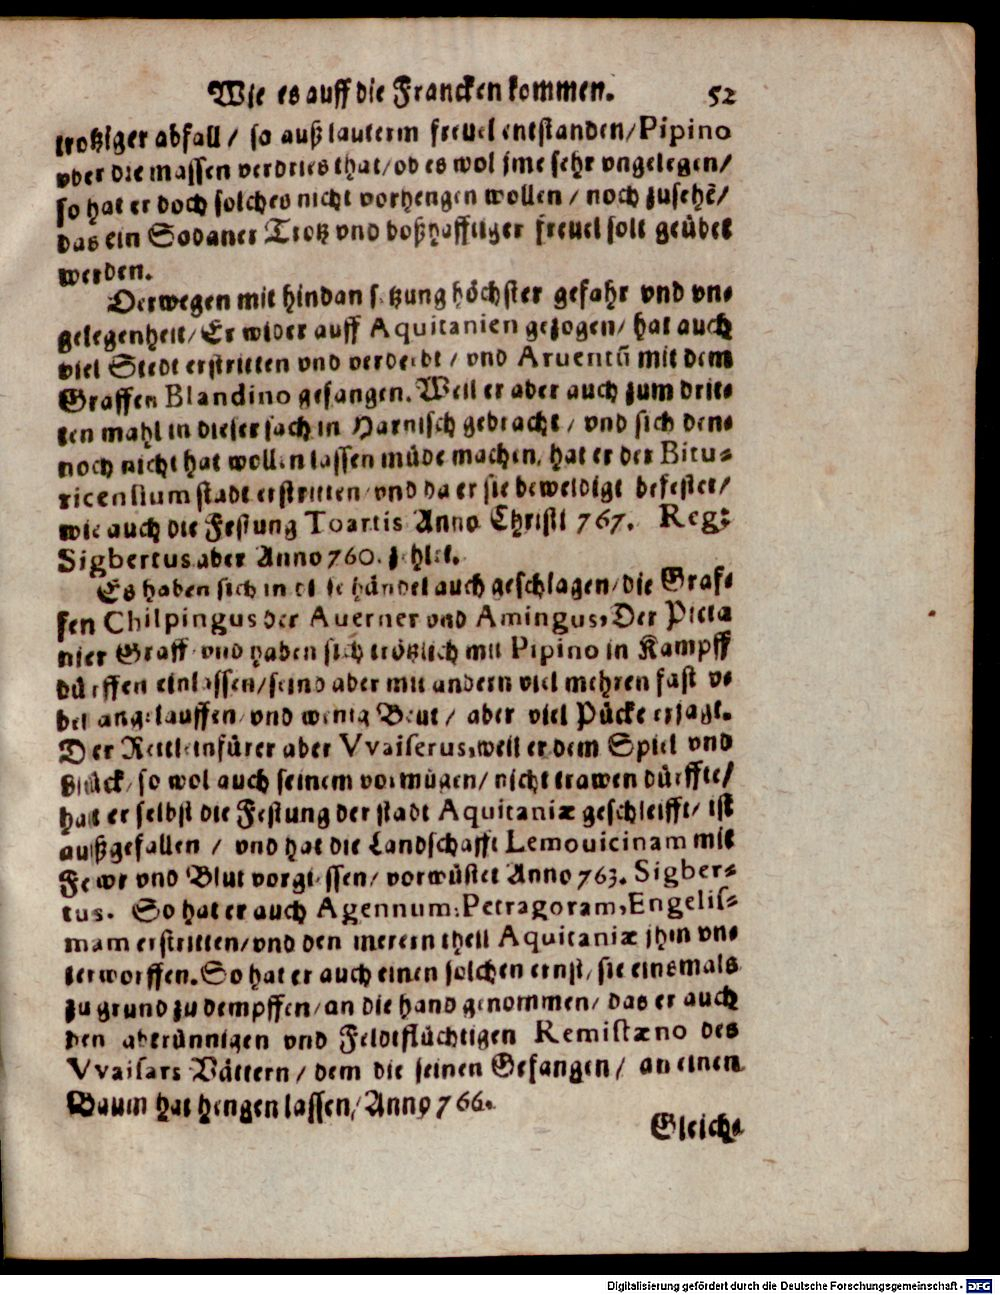 Wie es auff die Francken kommen. 52
trotziger abfall / so auß lauterm freuel entstanden / Pipino
vber die massen verdries that / ob es wol jme sehr vngelegen /
so hat er doch solches nicht vorhengen wollen / noch zusehē /
das ein Sodaner Trotz vnd boßhafftiger freuel solt geübet
werden.
Derwegen mit hindan setzung höchster gefahr vnd vn-
gelegenheit / Er wider auff Aquitanien gezogen / hat auch
viel Stedt erstritten vnd verderbt / vnd Aruentū mit dem
Graffen Blandino gefangen. Weil er aber auch zum drit-
ten mahl in dieser sach in Harnisch gebracht / vnd sich den-
noch nicht hat wollen lassen müde machen, hat er der Bitu-
ricensium stadt erstritten / vnd da er sie beweldigt befestet /
wie auch die Festung Toartis Anno Christi 767. Reg:
Sigbertus aber Anno 760. zehlet.
Es haben sich in diese händel auch geschlagen / die Graf-
fen Chilpingus der Auerner vnd Amingus, Der Picta
nier Graff / vnd haben sich trötzlich mit Pipino in Kampff
dürffen einlassen / seind aber mit andern viel mehren fast v-
bel angelauffen / vnd wenig Beut / aber viel Pücke erjagt.
Der Rettleinfürer aber Vvaiferus, weil er dem Spiel vnd
Glück / so wol auch seinem vormügen / nicht trawen dürffte /
hatt er selbst die Festung der stadt Aquitaniæ geschleifft / ist
außgefallen / vnd hat die Landschafft Lemouicinam mit
Fewr vnd Blut vorgiessen / vorwüstet Anno 763. Sigber-
tus. So hat er auch Agennum, Petragoram, Engelis-
mam erstritten / vnd den merern theil Aquitaniæ jhm vn-
terworffen. So hat er auch einen solchen ernst / sie einsmals
zu grund zu dempffen / an die hand genommen / das er auch
den abtrünnigen vnd Feldtflüchtigen Remistæno des
Vvaifars Vättern / dem die seinen Gefangen / an einen
Baum hat hengen lassen / Anno 766.
Gleich-
Digitalisierung gefördert durch die Deutsche Forschungsgemeinschaft - DFG